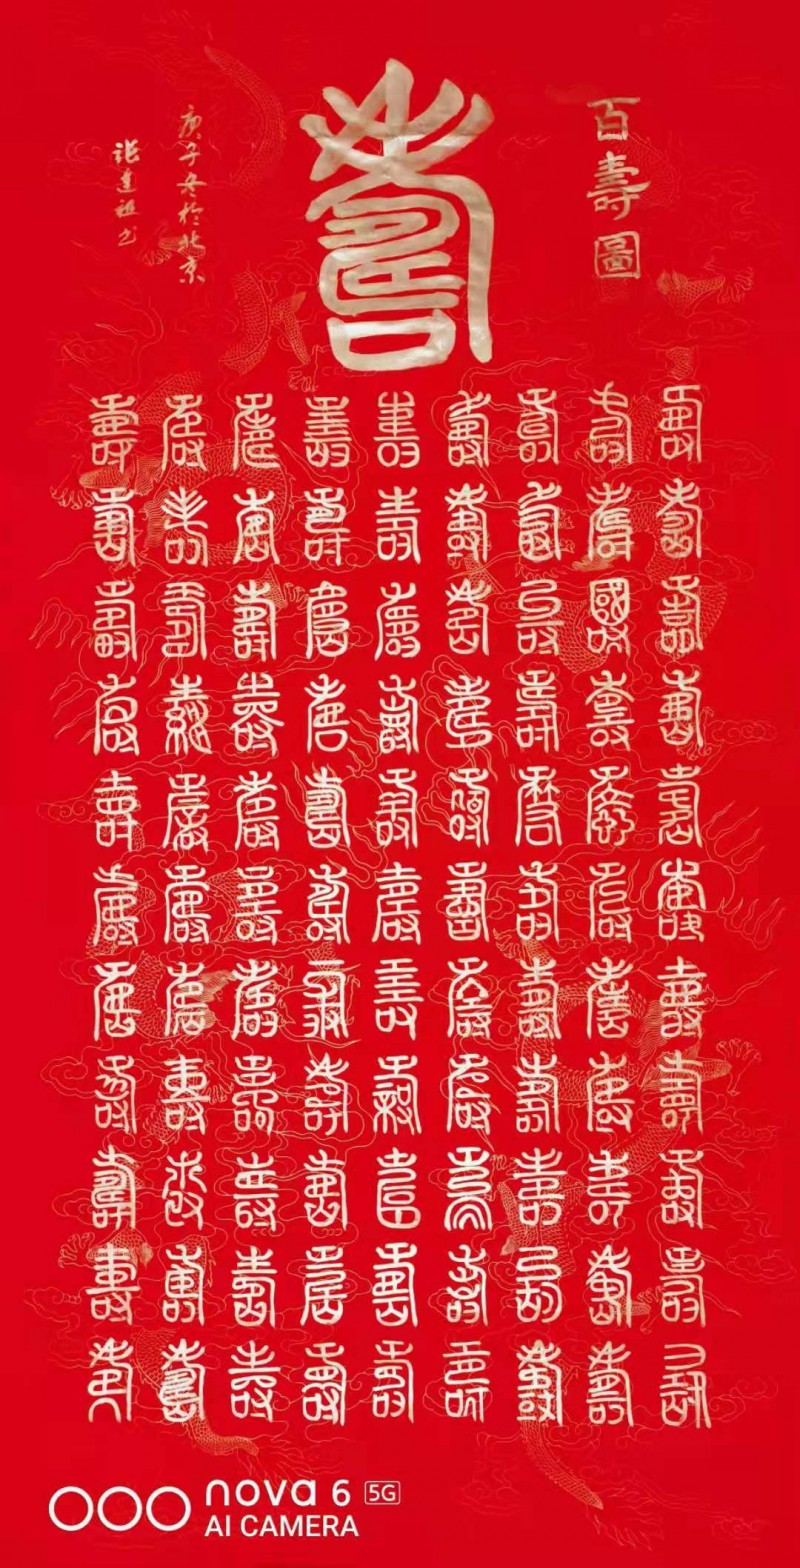 百壽圖
壽
庚子冬於北京
壽壽壽壽壽壽壽壽壽
壽壽壽壽壽壽壽壽壽
壽壽壽壽壽壽壽壽壽
壽壽壽壽壽壽壽壽壽
壽壽壽壽壽壽壽壽壽
壽壽壽壽壽壽壽壽壽
壽壽壽壽壽壽壽壽壽
壽壽壽壽壽壽壽壽壽
壽壽壽壽壽壽壽壽壽
壽壽壽壽壽壽壽壽壽
壽壽壽壽壽壽壽壽壽
nova 6 5G
AI CAMERA